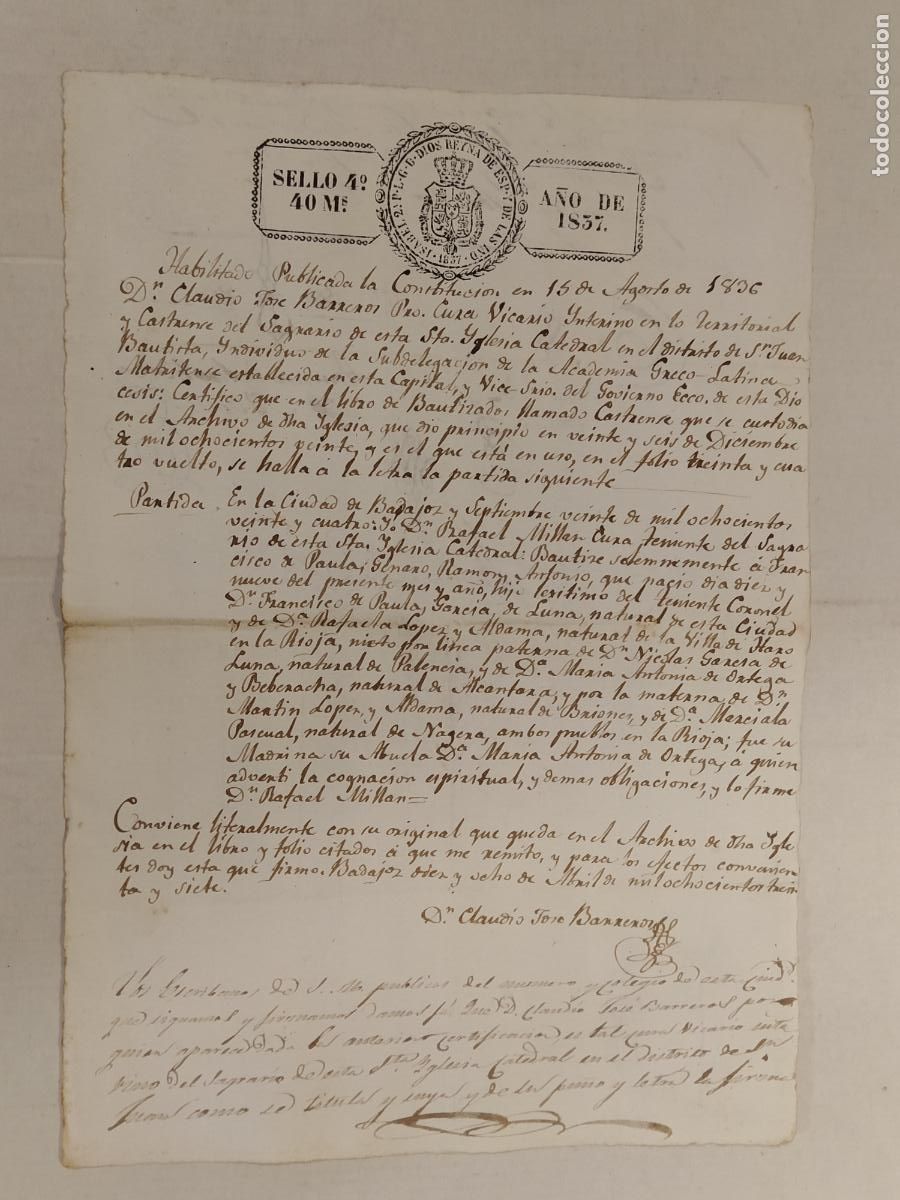 SELLO 4º
40 Ms
ISABEL 2ª P. L. G. D. DIOS REYNA DE ESP. Y DE LAS IND.
1837
AÑO DE
1837.
Habilitado Publicada la Constitucion en 15 de Agosto de 1836
Dn. Claudio Jose Barreros Pro. Cura Vicario Ynterino en lo Territorial
y Castrense del Sagrario de esta Sta. Yglesia Catedral en el distrito de Sn. Juan
Bautista, Yndividuo de la Subdelegacion de la Academia Greco-Latina
Matritense establecida en esta Capital, y Vice-Srio. del Govierno Ecco. de esta Dio
cesis: Certifico que en el libro de Bautizados llamado Castrense que se custodia
en el Archivo de dha Iglesia, que dio principio en veinte y seis de Diciembre
de mil ochocientos veinte, y es el que está en uso, en el folio treinta y cua
tro vuelto, se halla á la letra la partida siguiente
Partida. En la Ciudad de Badajoz y Septiembre veinte de mil ochocientos
veinte y cuatro: Yo Dn. Rafael Millan Cura teniente del Sagra
rio de esta Sta. Yglesia Catedral: Bautice solemnemente á Fran
cisco de Paula, Genaro, Ramon, Antonio, que nacio dia diez y
nueve del presente mes y año, hijo lexitimo del teniente Coronel
Dn. Francisco de Paula, Garcia, de Luna, natural de esta Ciudad
y de Da. Rafaela Lopez y Aldama, natural de la Villa de Haro
en la Rioja, nieto por linea paterna de Dn. Nicolas Garcia de
Luna, natural de Palencia, y de Da. Maria Antonia de Ortega
y Beberacha, natural de Alcantara; y por la materna de Dn.
Martin Lopez, y Aldama, natural de Briones, y de Da. Marciala
Pascual, natural de Nagera, ambos pueblos en la Rioja; fue su
Madrina su Abuela Da. Maria Antonia de Ortega, á quien
adverti la cognacion espiritual, y demas obligaciones, y lo firme
Dn. Rafael Millan=
Conviene literalmente con su original que queda en el Archivo de dha Ygle
sia en el libro y folio citados á que me remito, y para los efectos convenien
tes doy esta que firmo. Badajoz diez y ocho de Abril de mil ochocientos trein
ta y siete.
Dn. Claudio Jose Barreros
Los Escribanos de S. M. publicos del numero y Colegio de esta Ciud.
que signamos y firmamos damos fé: Que D. Claudio José Barreros por
quien aparece dada la anterior certificacion es tal cura Vicario inte
rino del Sagrario de esta Sta. Yglesia Catedral en el distrito de Sn
Juan como se titula y suya y de su puno y letra la firma
todocoleccion